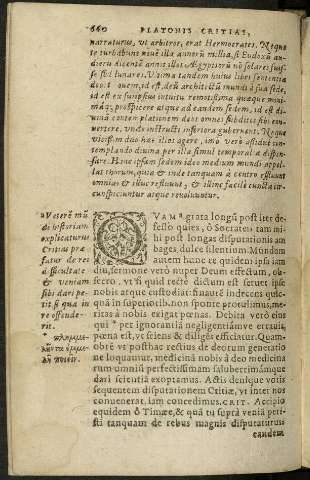 660 PLATONIS CRITIAS,
narraturus, ut arbitror, erat Hermocrates. Neque
te turbabunt novē illa annorū millia, si Eudoxū au-
dieru dicentē annos illos Aegyptiorū nō solares fuis-
se sed lunares. Vltima tandem huius libri sententia
docet Iouem, id est, deū architectū mundi à sua sede,
id est ex suipsius intuitu remotissima quæque mini-
máq; prospicere atque ad eandem sedem, id est di-
uinā contemplationem deos omnes subditos sibi con-
uertere, unde instructi inferiora gubernent. Neque
uicissim duo hæc illos agere, imò verò assidue con-
templando diuina per illa simul temporalia dispen-
sare. Hanc ipsam sedem ideo medium mundi appel-
lat thorum, quia & inde tanquam à centro effluunt
omnia & illuc refluunt, & illinc facile cuncta cir-
cunspiciuntur atque reuoluuntur.
a Veterē mū
di historiam
explicaturus
Critias præ
fatur de rei
difficultate
& veniam
sibi dari pe-
tit si quà in
re offende-
rit.
QVAM a grata longū post iter de-
fesso quies, ô Socrates tam mi-
hi post longas disputationis am
bages dulce silentium. Mundum
autem hunc re quidem ipsa iam
diu, sermone verò nuper Deum effectum, ob-
secro, vt si quid rectè dictum est seruet ipse
nobis atque custodiat: sinautē indecens quic-
quā in superiorib. non sponte protulimus, me-
ritas à nobis exigat pœnas. Debita verò eius
qui * per ignorantiā negligentiámve errauit,
pœna est, vt sciens & diligēs efficiatur. Quam-
obrē vt posthac rectius de deorum generatio
ne loquamur, medicinā nobis à deo medicina
rum omniū perfectissimam saluberrimámque
dari scientiā exoptamus. Actis denique votis
sequentem disputationem Critiæ, vt inter nos
conuenerat, iam concedimus. CRIT. Accipio
equidem ô Timæe, & quā tu suprà veniā petii-
sti tanquam de rebus magnis disputaturus
tandem